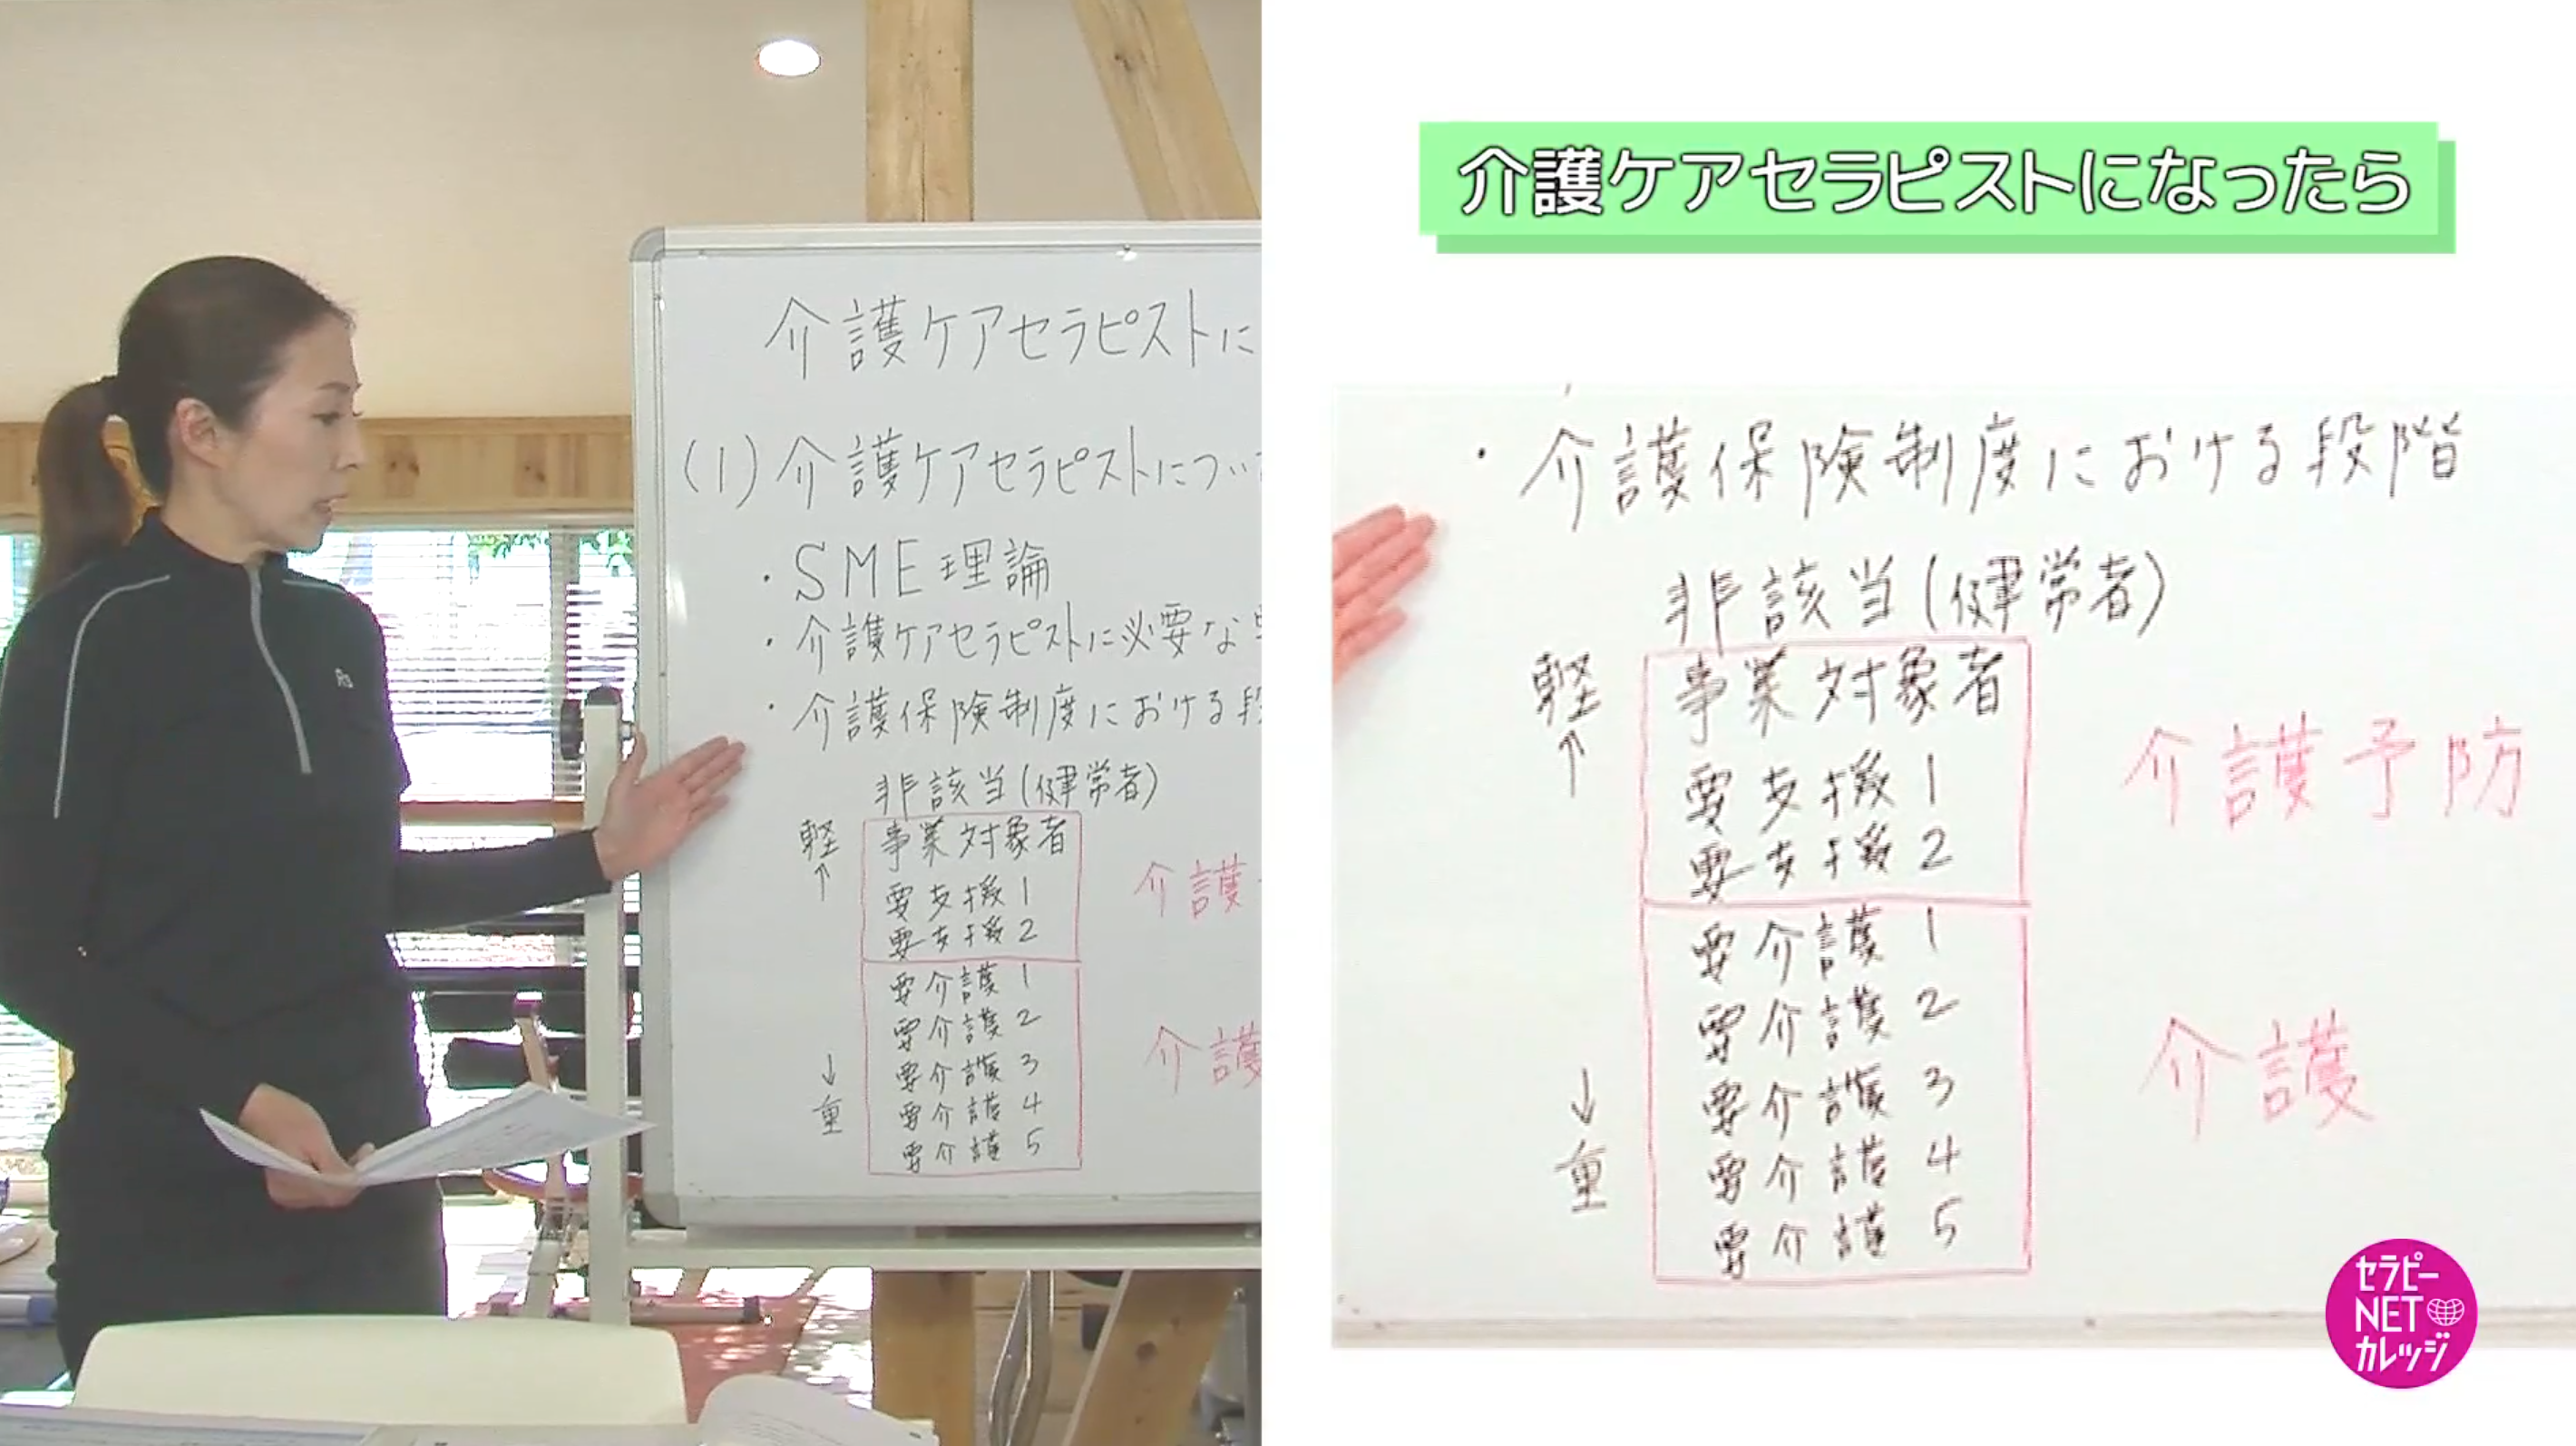 介護ケアセラピストに
(1)介護ケアセラピストについ
・SME理論
・介護ケアセラピストに必要な
・介護保険制度における段
非該当(健常者)
軽
↑
事業対象者
要支援1
要支援2
介護
要介護1
要介護2
要介護3
要介護4
要介護5
↓
重
介護
介護ケアセラピストになったら
・介護保険制度における段階
非該当(健常者)
軽
↑
事業対象者
要支援1
要支援2
介護予防
要介護1
要介護2
要介護3
要介護4
要介護5
↓
重
介護
セラピー
NET
カレッジ